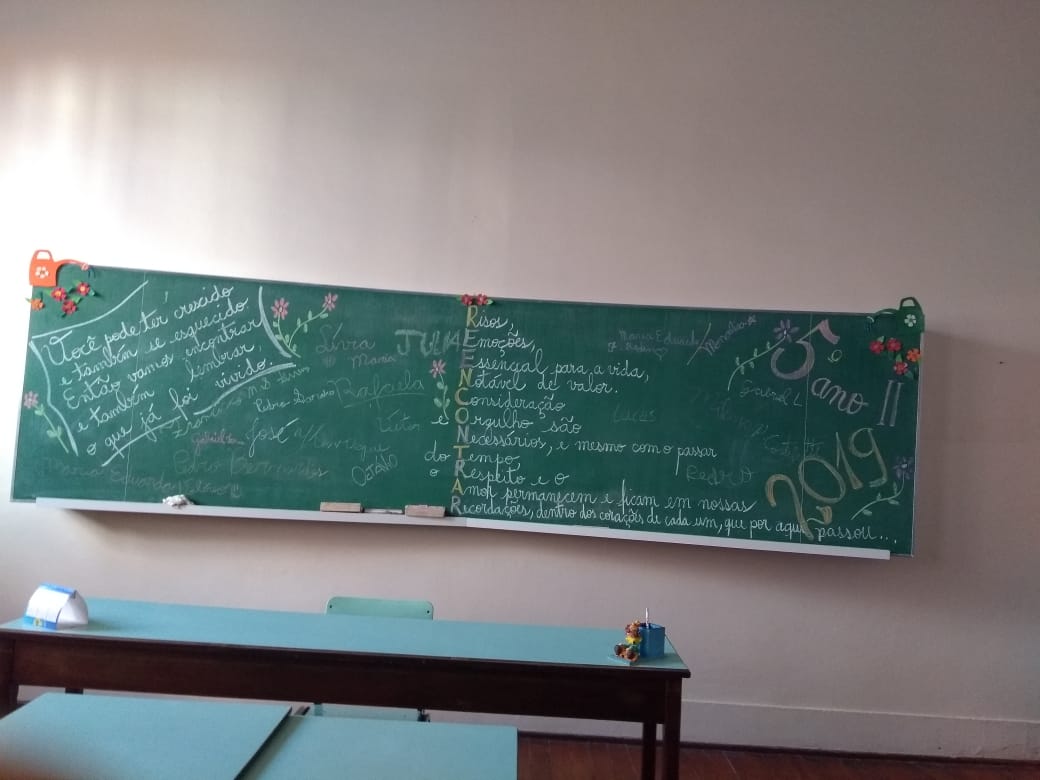 Você pode ter crescido
e também se esquecido
Então vamos encontrar
e também lembrar
o que já foi vivido.
Lívia
Maria
JULIA
Rafaela
Pedro
Vitor
Gabriella
José Henrique
Otávio
Pedro Bermudes
Maria
Eduarda
Risos,
Emoções,
Essencial para a vida,
Notável de valor.
Consideração
e Orgulho são
Necessários, e mesmo com o passar
do Tempo,
o Respeito e o
Amor permanecem e ficam em nossas
Recordações, dentro dos corações de cada um, que por aqui passou...
Maria Eduarda
Lucas
Pedro
5º
ano II
2019